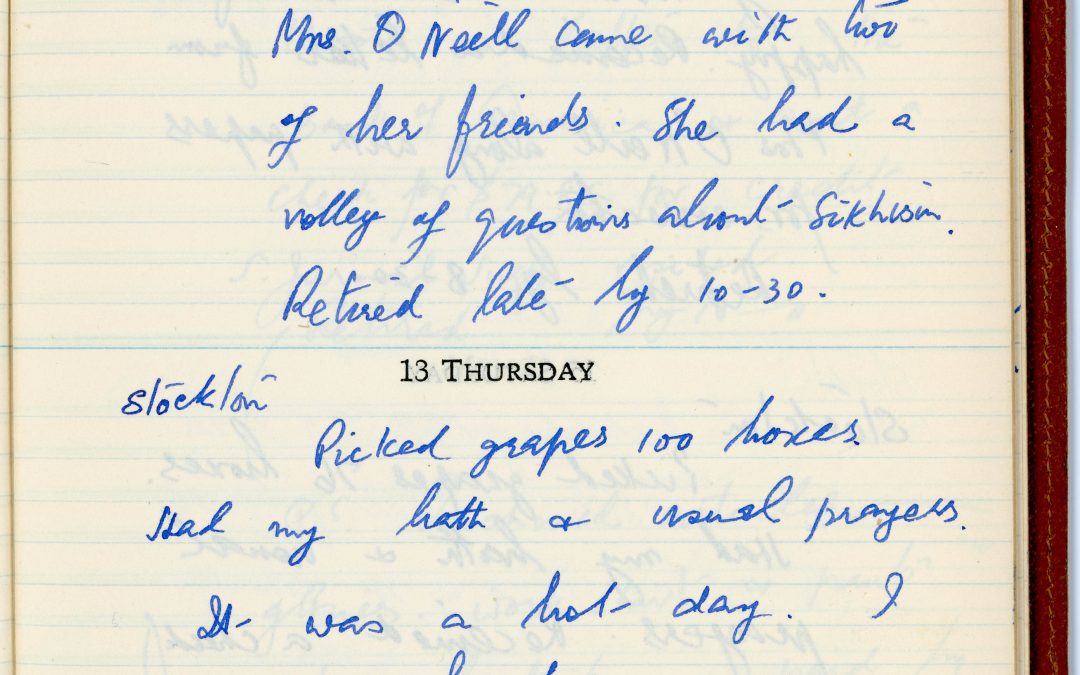 Mrs. O Neill came with two
of her friends. She had a
volley of questions about Sikhism.
Retired late by 10-30.
13 THURSDAY
Stockton
Picked grapes 100 boxes.
Had my bath & usual prayers.
It was a hot day. I